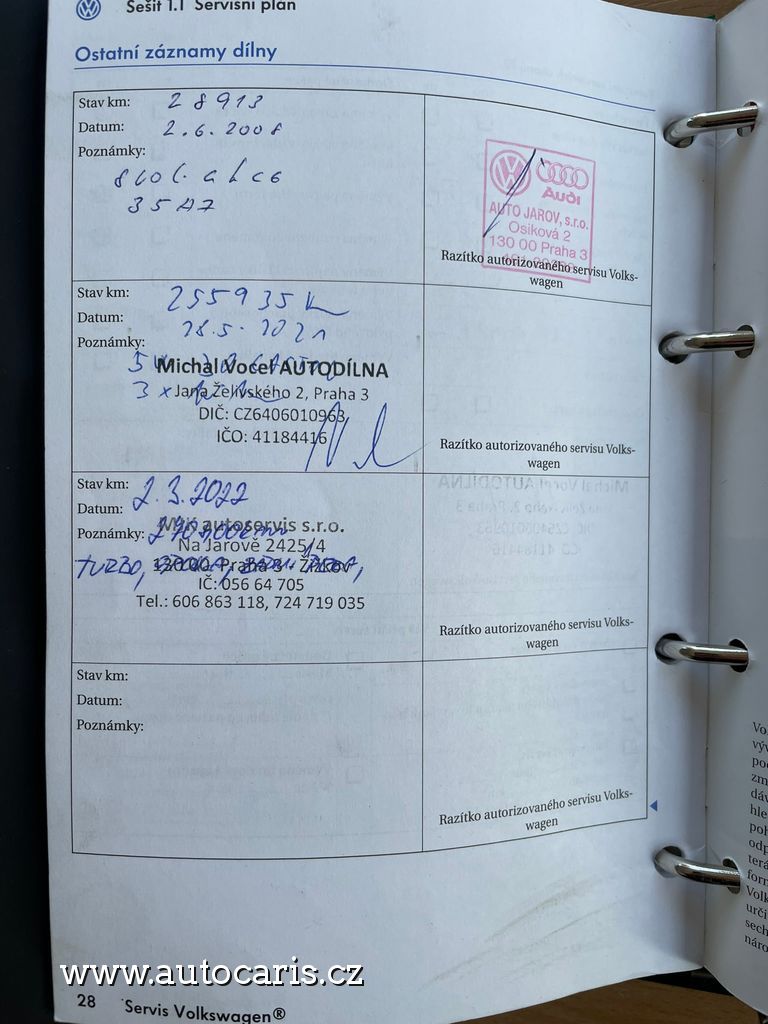 Sešit 1.1 Servisní plán
Ostatní záznamy dílny
Stav km: 28913
Datum: 2.6.2008
Poznámky:
35A7
Audi
AUTO JAROV, s.r.o.
Osiková 2
130 00 Praha 3
Razítko autorizovaného servisu Volks-
wagen
Stav km: 255935
Datum: 28.5.2021
Poznámky:
Michal Vocel AUTODÍLNA
3x
Jana Želivského 2, Praha 3
DIČ: CZ6406010963
IČO: 41184416
Razítko autorizovaného servisu Volks-
wagen
Stav km: 2.3.2022
Datum:
Poznámky:
autoservis s.r.o.
Na Jarově 2425/4
TURBO,
130 00 Praha 3 - Žižkov
IČ: 056 64 705
Tel.: 606 863 118, 724 719 035
Razítko autorizovaného servisu Volks-
wagen
Stav km:
Datum:
Poznámky:
Razítko autorizovaného servisu Volks-
wagen
www.autocaris.cz
28 Servis Volkswagen®